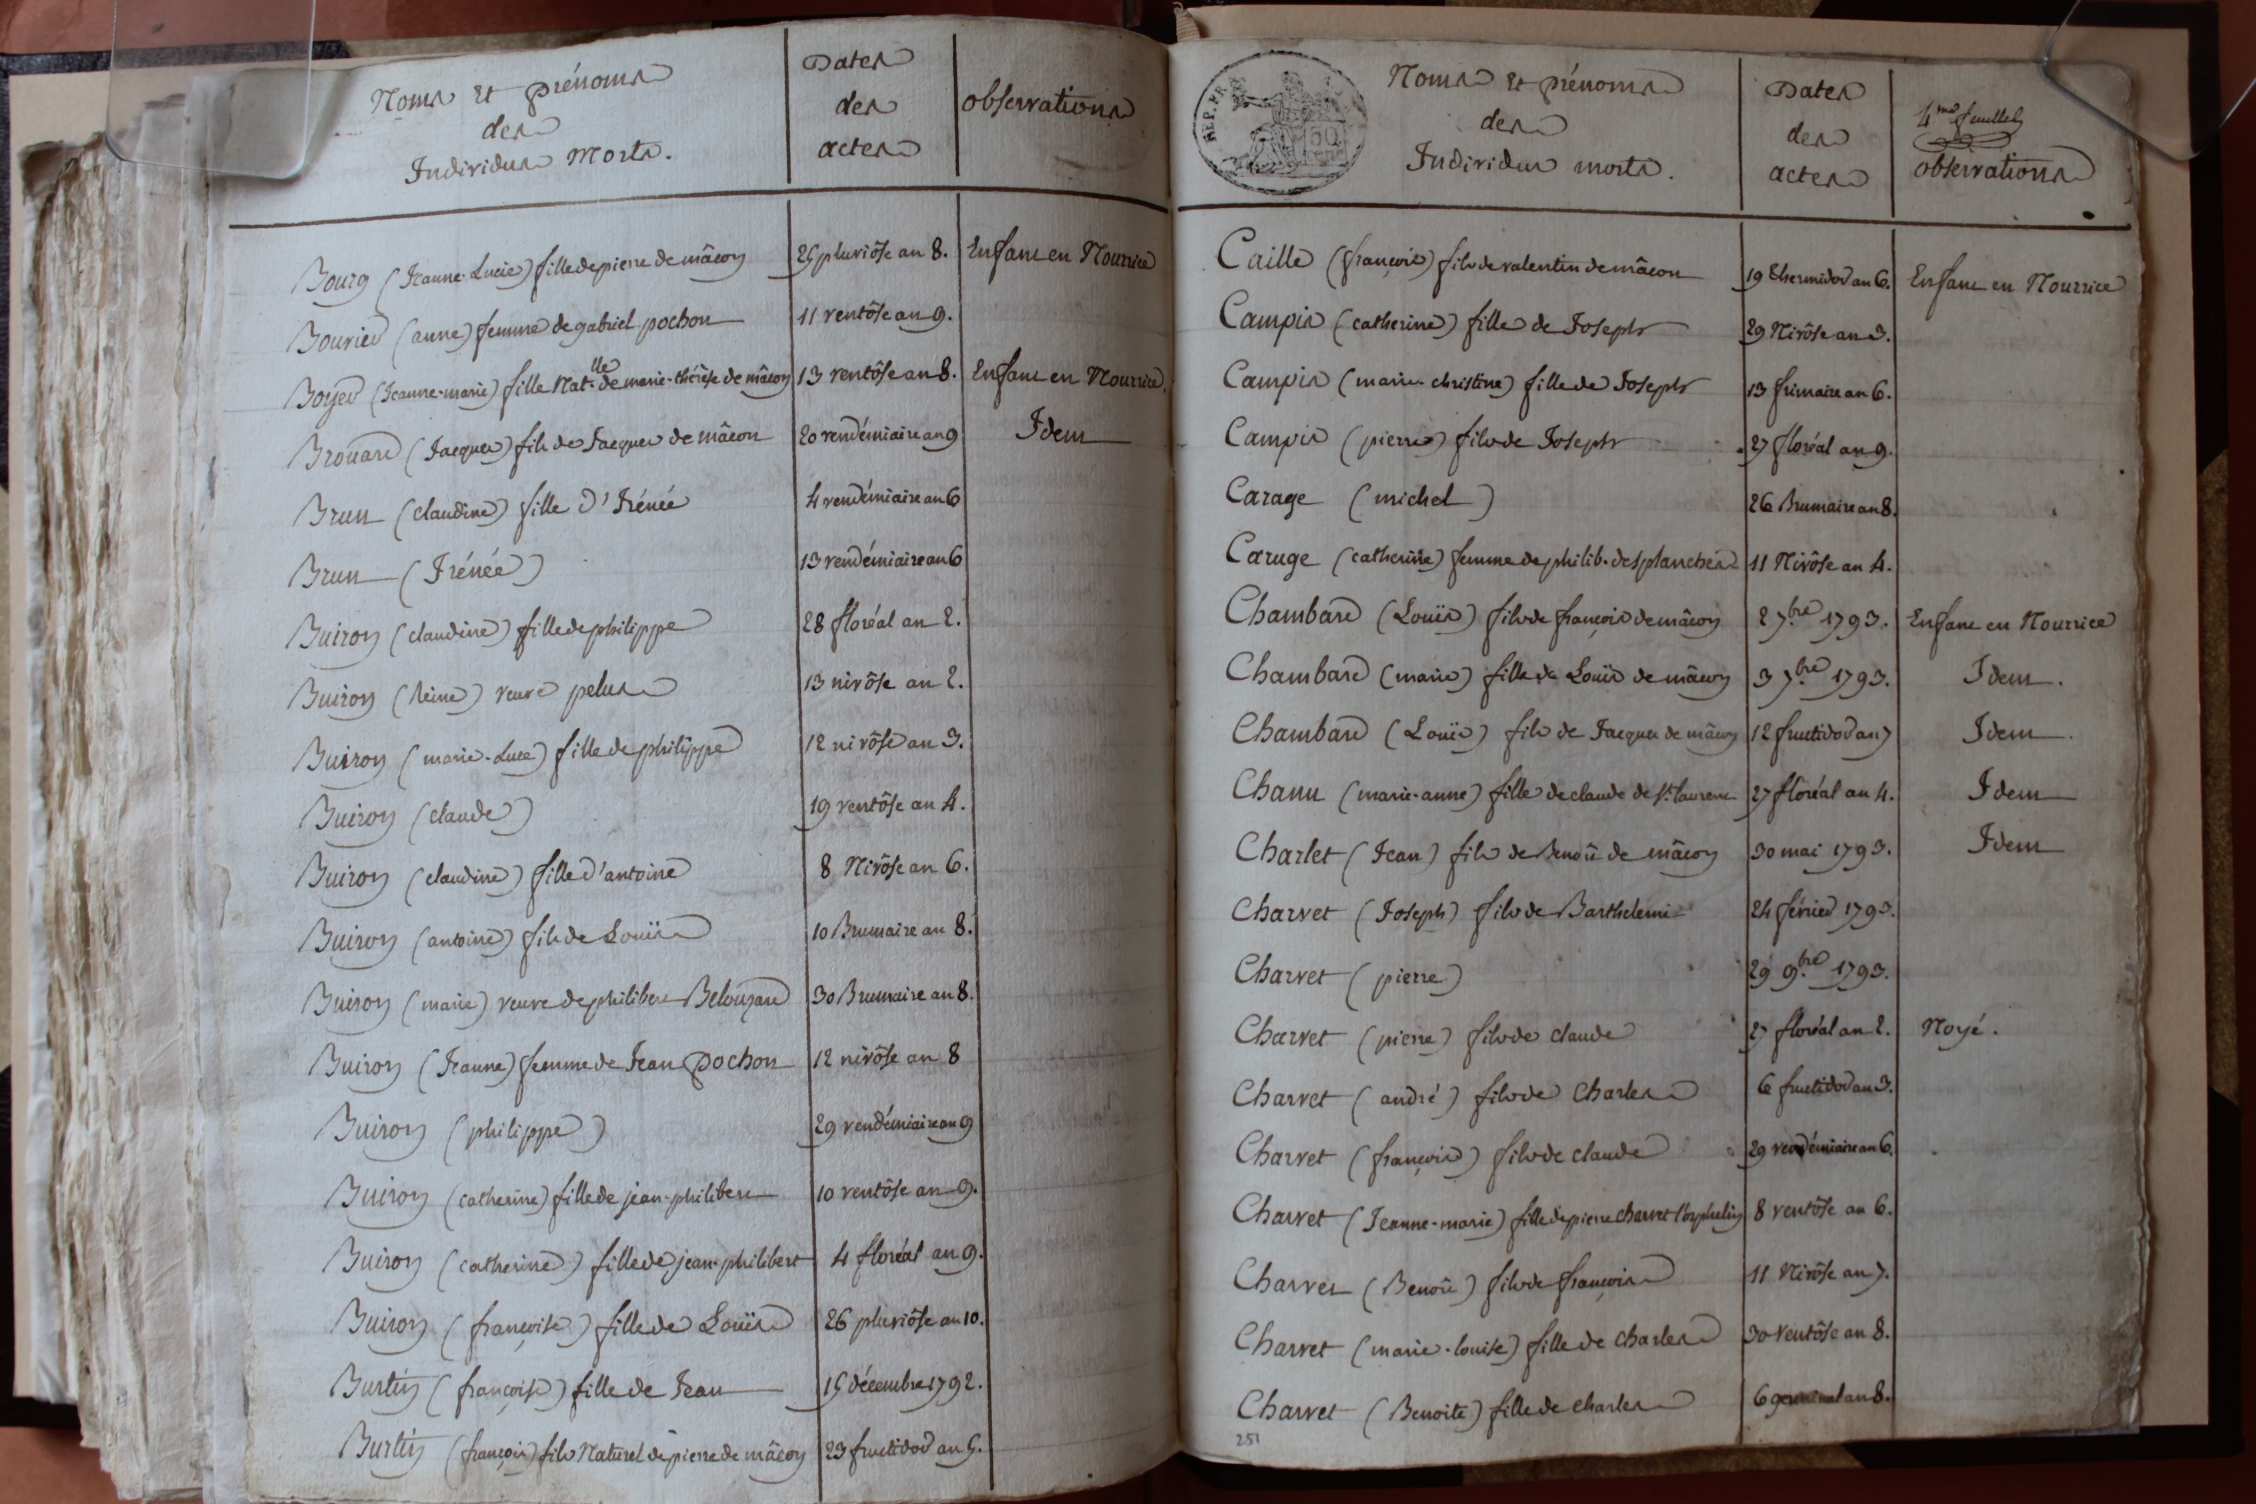 Noms et prénoms
des
Individus Morts.
Dates
des
actes
observations
Bourg (Jeanne-Lucie) fille de pierre de mâcon 25 pluviôse an 8. Enfant en Nourrice
Bouvier (anne) femme de gabriel pochon 11 ventôse an 9.
Boyer (Jeanne-marie) fille Nat.lle de marie-thérèse de mâcon 13 ventôse an 8. Enfant en Nourrice.
Brouard (Jacques) fils de Jacques de mâcon 20 vendémiaire an 9 Idem
Brun (claudine) fille d'Irénée 4 vendémiaire an 6
Brun (Irénée) 13 vendémiaire an 6
Buiron (claudine) fille de philippe 28 floréal an 2.
Buiron (Reine) veuve pelus 13 nivôse an 2.
Buiron (marie-Luce) fille de philippe 12 nivôse an 3.
Buiron (claude) 19 ventôse an 4.
Buiron (claudine) fille d'antoine 8 Nivôse an 6.
Buiron (antoine) fils de Louis 10 Brumaire an 8.
Buiron (marie) veuve de philibert Belouzard 30 Brumaire an 8.
Buiron (Jeanne) femme de Jean Pochon 12 nivôse an 8
Buiron (philippe) 29 vendémiaire an 9
Buiron (catherine) fille de jean-philibert 10 ventôse an 9.
Buiron (catherine) fille de jean-philibert 4 floréal an 9.
Buiron (françoise) fille de Louis 26 pluviôse an 10.
Burtin (françoise) fille de Jean 15 décembre 1792.
Burtin (françois) fils Naturel de pierre de mâcon 23 fructidor an 5.
REP. FR
50
Noms et prénoms
des
Individus morts.
Dates
des
actes
4.me feuillet
observations
Caille (françois) fils de valentin de mâcon 19 thermidor an 6. Enfant en Nourrice
Campis (catherine) fille de Joseph 29 Nivôse an 3.
Campis (marie-christine) fille de Joseph 13 frimaire an 6.
Campis (pierre) fils de Joseph 27 floréal an 9.
Carage (michel) 26 Brumaire an 8.
Caruge (catherine) femme de philib. desplanches 11 Nivôse an 4.
Chambard (Louis) fils de françois de mâcon 2 7.bre 1793. Enfant en Nourrice
Chambard (marie) fille de Louis de mâcon 3 7.bre 1793. Idem.
Chambard (Louis) fils de Jacques de mâcon 12 fructidor an 7 Idem.
Chanu (marie-anne) fille de claude de s.t laurent 27 floréal an 4. Idem
Charlet (Jean) fils de Benoît de mâcon 30 mai 1793. Idem
Charvet (Joseph) fils de Barthelemi 24 février 1793.
Charvet (pierre) 29 9.bre 1793.
Charvet (pierre) fils de claude 27 floréal an 2. Noyé.
Charvet (andré) fils de Charles 6 fructidor an 3.
Charvet (françois) fils de claude 29 vendémiaire an 6.
Charvet (Jeanne-marie) fille de pierre charvet l'orphelin 8 ventôse an 6.
Charvet (Benoît) fils de françois 11 Nivôse an 7.
Charvet (marie-louise) fille de charles 30 Ventôse an 8.
Charvet (Benoite) fille de charles 6 germinal an 8.
251